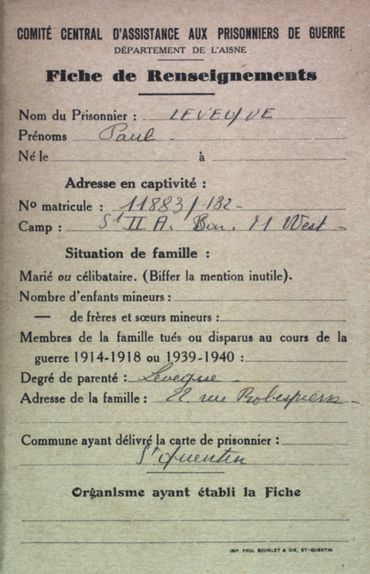 COMITÉ CENTRAL D'ASSISTANCE AUX PRISONNIERS DE GUERRE
DÉPARTEMENT DE L'AISNE
Fiche de Renseignements
Nom du Prisonnier : LEVEQUE
Prénoms Paul
Né le à
Adresse en captivité :
No matricule : 11883/132
Camp : St II A. Bar. 21 West
Situation de famille :
Marié ou célibataire. (Biffer la mention inutile).
Nombre d'enfants mineurs :
— de frères et sœurs mineurs :
Membres de la famille tués ou disparus au cours de la
guerre 1914-1918 ou 1939-1940 :
Degré de parenté : Leveque
Adresse de la famille : 22 rue Robespierre
Commune ayant délivré la carte de prisonnier :
St Quentin
Organisme ayant établi la Fiche
IMP. PAUL BOURLET & CIE, ST-QUENTIN